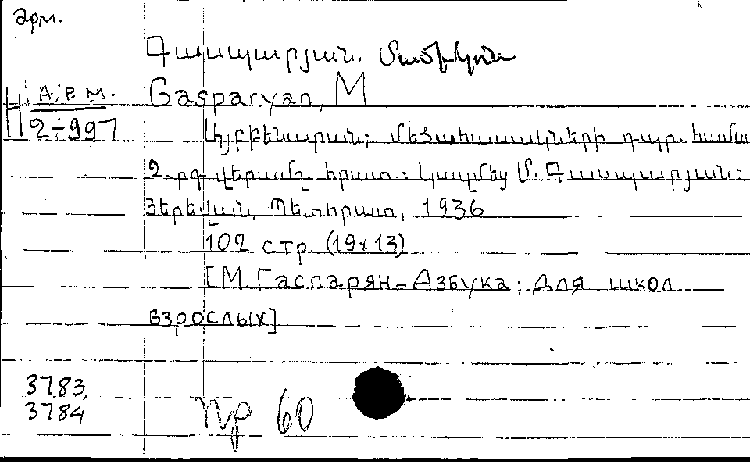 Арм.
Գասպարյան, Մամիկոն
А.Р.М. Gasparyan, M
2-997 Այբբենարան; մեծահասակների դպր. համար
2-րդ վերամշ. հրատ.: Կազմեց Մ. Գասպարյան:
Յերեվան, Պետհրատ, 1936
102 стр (19x13)
[М. Гаспарян-Азбука; для школ
взрослых]
3783,
3784
пр 60